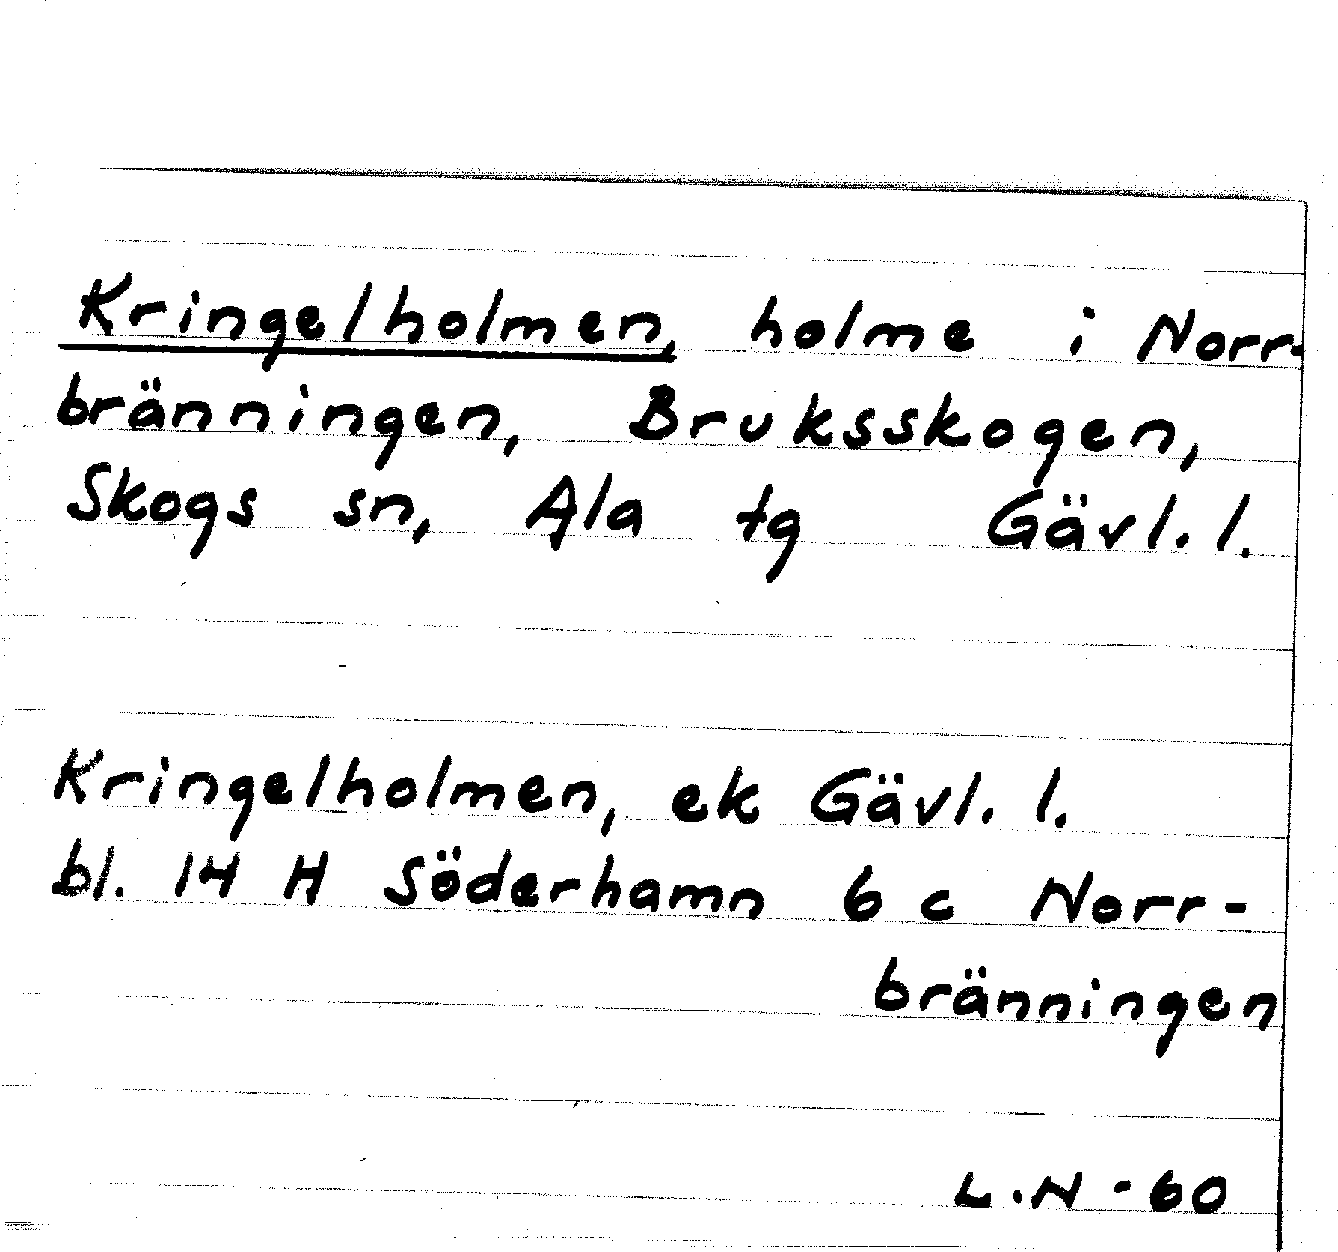 Kringelholmen, holme i Norr-
bränningen, Bruksskogen,
Skogs sn, Ala tg Gävl. l.
Kringelholmen, ek Gävl. l.
bl. 14 H Söderhamn 6 c Norr-
bränningen
L.N - 60